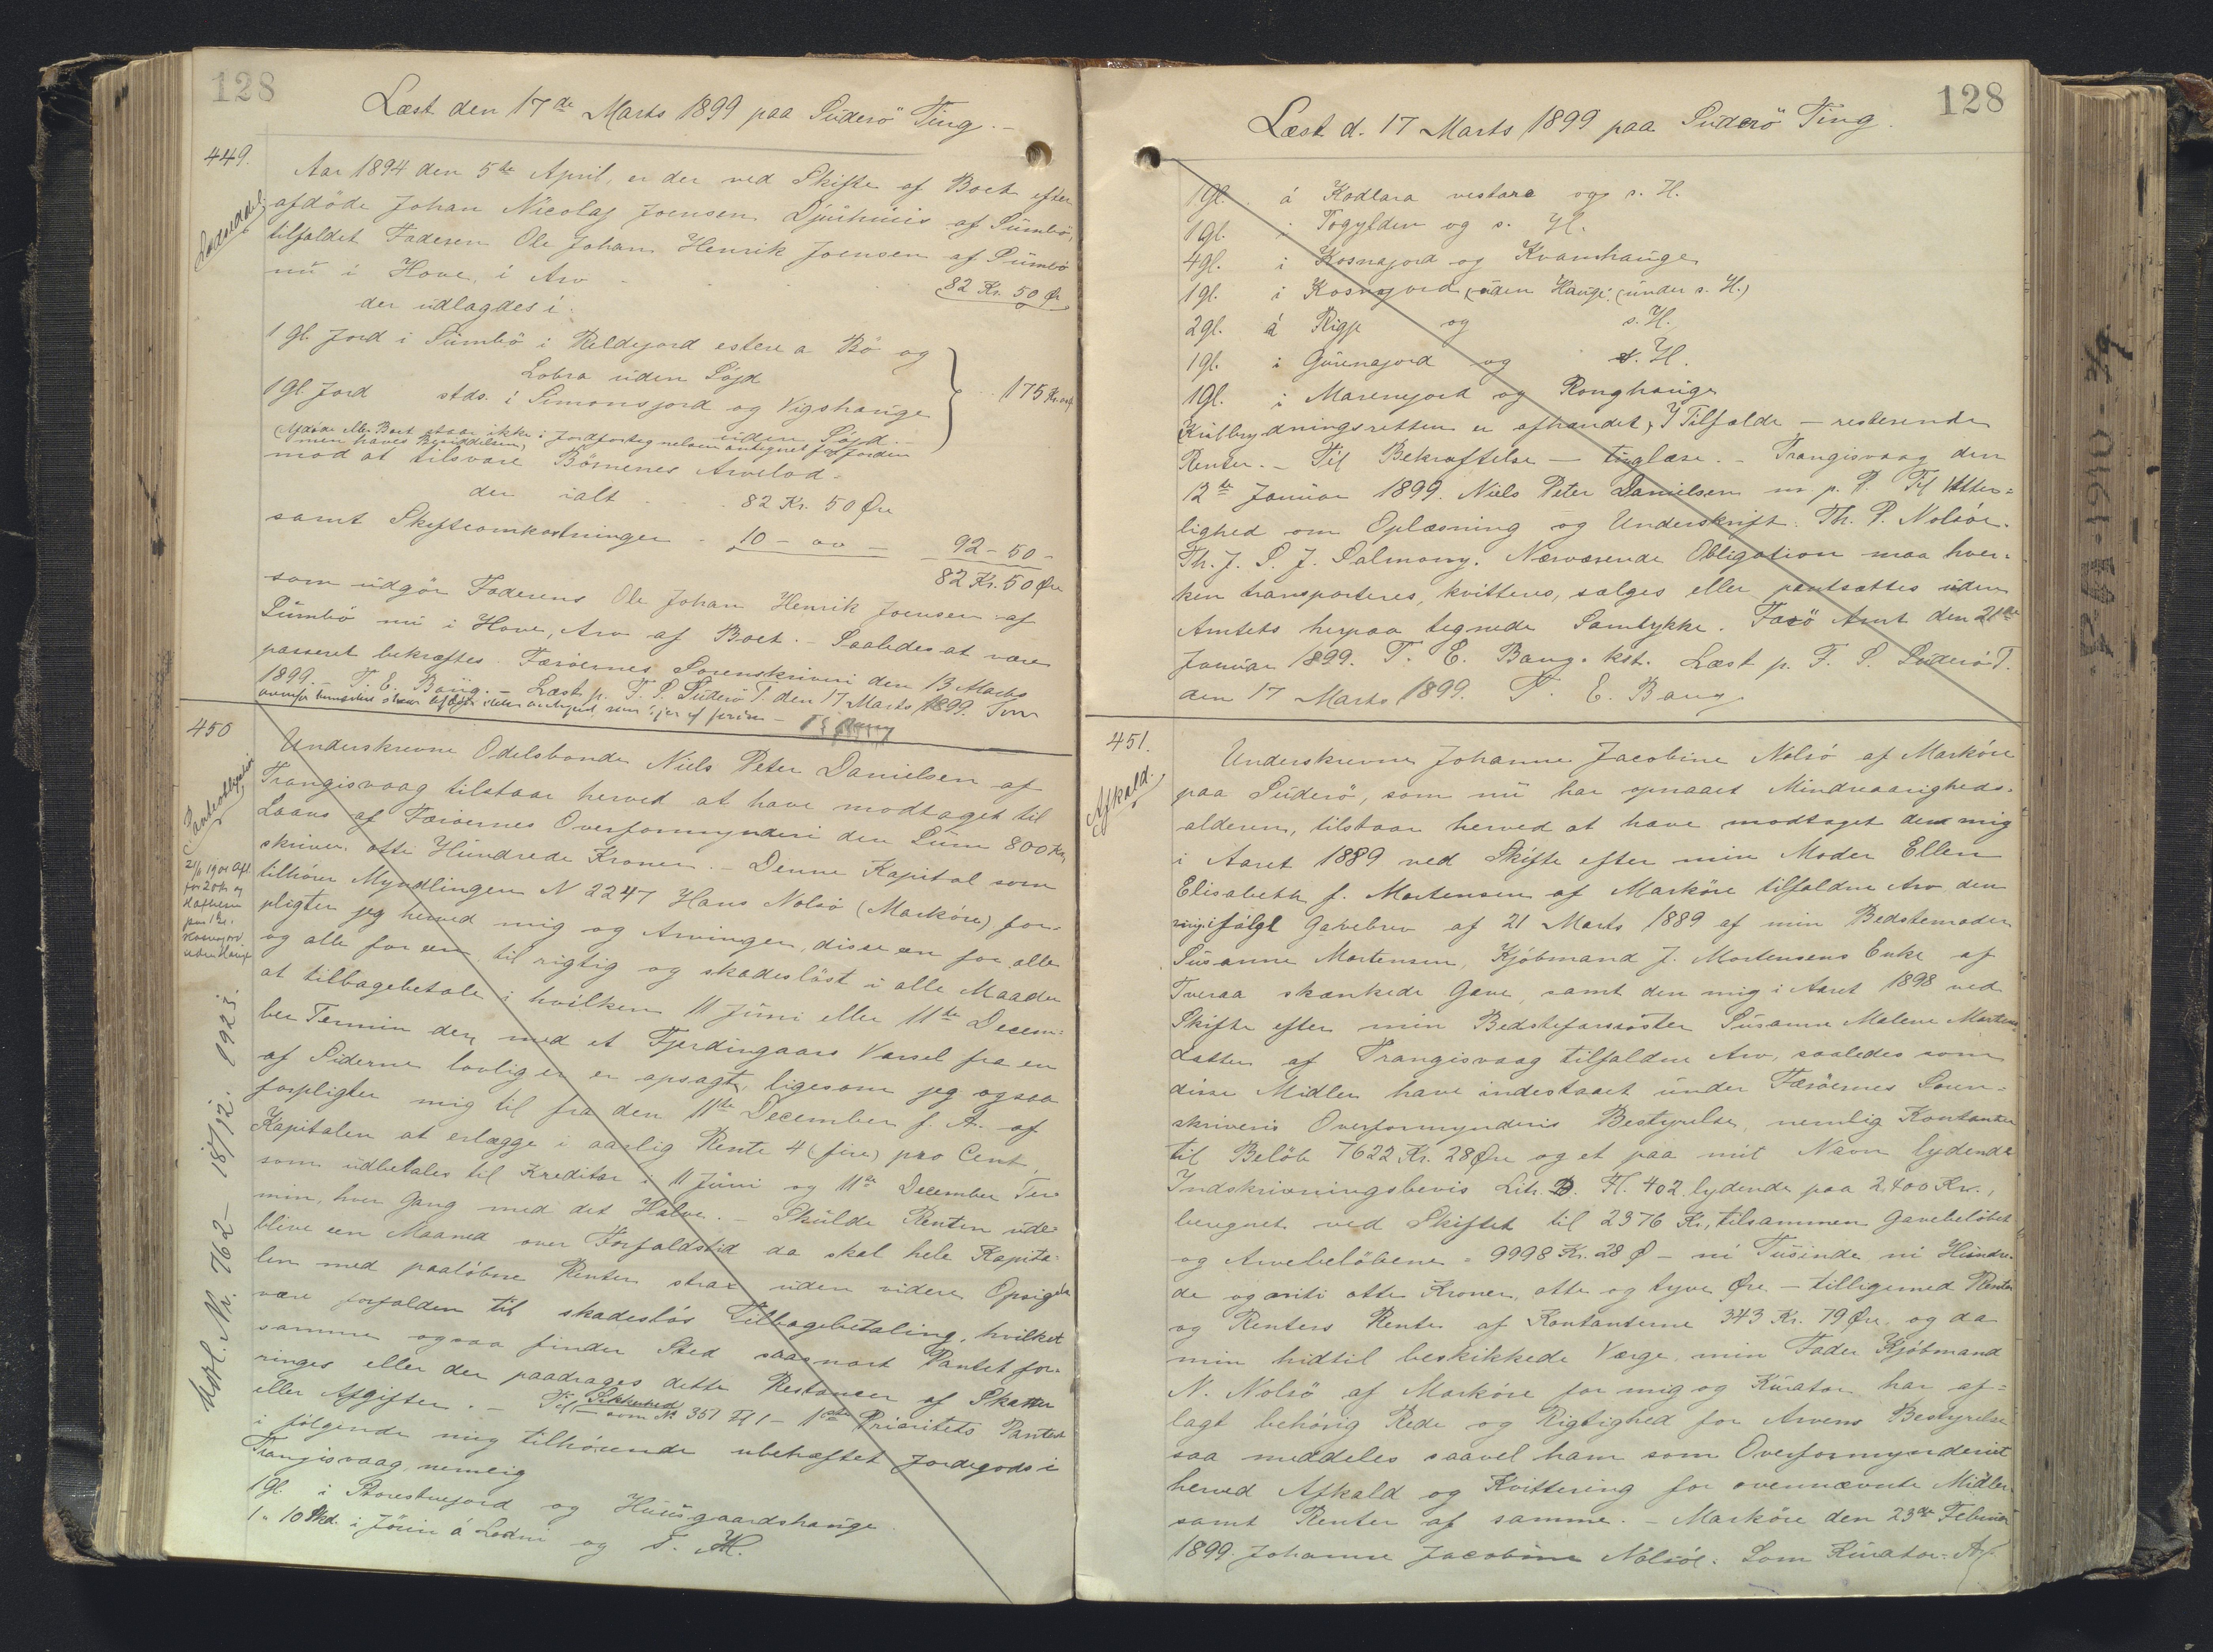 128
Læst den 17de Marts 1899 paa Süderö Ting.
449.
Aar 1894 den 5te April, er der ved Skifte af Boet efter
afdöde Johan Nicolaj Joensen Djúhúis af Sümbö,
tilfaldet Faderen Ole Johan Henrik Joensen af Sümbö
nü i Hove, i Arv 82 Kr. 50 Øre
der üdlagdes i:
1 gl. Jord i Sümbö i Reldejord estere a Bö og
Lobra üden Söjd
1 gl. Jord stds. i Simonsjord og Vigshaüge
üden Söjd
175 Kr.
mod at tilsvare Börnenes Arvelod
der ialt 82 Kr. 50 Øre
samt Skifteomkostninger 10 - 00 - 92 - 50 -
82 Kr. 50 Øre
som üdgör Faderens Ole Johan Henrik Joensen af
Sümbö nü i Hove, Arv af Boet. - Saaledes at være
passeret bekræftes. Færöernes Sorenskriveri den 13 Marts
1899. - T. E. Bang. - Læst p. F. S. Süderö T. den 17 Marts 1899.
450
Pantobligation
Underskrevne Odelsbonde Niels Peter Danielsen af
Trangisvaag tilstaar herved at have modtaget til
Laans af Færöernes Overformynderi den Süm 800 Kr,
skriver otte Hündrede Kroner. - Denne Kapital som
tilhörer Myndlingen N 2247 Hans Nolsö (Marköre) for-
pligter jeg herved mig og Arvinger, disse en for alle
og alle for en, til rigtig og skadeslöst i alle Maader
at tilbagebetale i hvilken 11 Jüni eller 11te Decem-
ber Termin den med et Fjerdingaars Varsel fra en
af Siderne lovlig er opsagt, ligesom jeg ogsaa
forpligter mig til fra den 11te December f. A. af
Kapitalen at erlægge i aarlig Rente 4 (fire) pro Cent,
som üdbetales til Kreditor i 11 Jüni og 11te December Ter-
min, hver Gang med det Halve. - Skülde Renten üde-
blive een Maaned over Forfaldstid da skal hele Kapita-
len med paalöbne Renter strax üden videre Opsigelse
være forfalden til skadeslös Tilbagebetaling, hvilket
samme ogsaa finder Sted saasnart Pantet for-
ringes eller der paadrages dette Restancer af Skatter
eller Afgifter. - Til Sikkerhed som No 351 Fl 1 - 1ste Prioritets Panteret
i fölgende mig tilhörende ubehæftet Jordegods i
Trangisvaag, nemlig
1 gl. i Storestuejord og Húsgaardshaüge.
1 " 10 Skd. i Jönin á Ledni og s. H.
Kbl. Nr. 762 - 18/12. 1923.
128
Læst d. 17 Marts 1899 paa Süderö Ting.
1 gl. á Kodlara vestare og s. H.
1 gl. i Togylden og s. H.
4 gl. i Kosnajord og Kvamhaüge
1 gl. i Kosnajord (üden Haüge) (ünder s. H.)
2 gl. á Rigje og s. H.
1 gl. i Gúrenajord og s. H.
1 gl. i Marenejord og Ronghaüge
Külbrydningsretten er afhændet, I Tilfælde - resterende
Renter. - Til Bekræftelse - tinglæse. - Trangisvaag den
12te Janüar 1899. Niels Peter Danielsen m. p. P. Til Vitter-
lighed om Oplæsning og Underskrift: Th. P. Nolsöe.
Th. J. S. J. Salmony. Nærværende Obligation maa hver-
ken transporteres, kvitteres, sælges eller pantsættes üden
Amtets herpaa tegnede Samtykke. Færö Amt den 21de
Janüar 1899. T. E. Bang. kst. Læst p. F. S. Süderö T.
den 17 Marts 1899. T. E. Bang
451.
Afkald.
Underskrevne Johanne Jacobine Nolsö af Marköre
paa Süderö, som nü har opnaaet Mindreaarigheds-
alderen, tilstaar herved at have modtaget den mig
i Aaret 1889 ved Skifte efter min Moder Ellen
Elisabeth f. Mortensen af Marköre tilfaldne Arv den
mig ifölge Gavebrev af 21 Marts 1889 af min Bedstemoder
Süsanne Mortensen, Kjöbmand J. Mortensens Enke af
Tveraa skænkede Gave, samt den mig i Aaret 1898 ved
Skifte efter min Bedstefarssöster Süsanne Malene Mortens-
datter af Trangisvaag tilfaldne Arv, saaledes som
disse Midler have indestaaet ünder Færöernes Soren-
skriveris Overformynderis Bestyrelse, nemlig Kontanter
til Belöb 7622 Kr. 28 Øre og et paa mit Navn lydende
Indskrivningsbevis Litr. D. Fl. 402 lydende paa 2,400 Kr.,
beregnet ved Skiftet til 2376 Kr., tilsammen Gavebelöbet
og Arvebelöbene = 9998 Kr. 28 Ø - ni Tüsinde ni Hündre-
de og niti otte Kroner, otte og tyve Øre - tilligemed Renter
og Renters Rente af Kontanterne 343 Kr. 79 Øre og da
min hidtil beskikkede Værge, min Fader Kjöbmand
N. Nolsö af Marköre for mig og Kürator har af-
lagt behörig Rede og Rigtighed for Arvens Bestyrelse
saa meddeles saavel ham som Overformynderiet
herved Afkald og Kvittering for ovennævnte Midler
samt Renter af samme. - Marköre den 23de Februar
1899. Johanne Jacobine Nolsöe. Som Kürator: